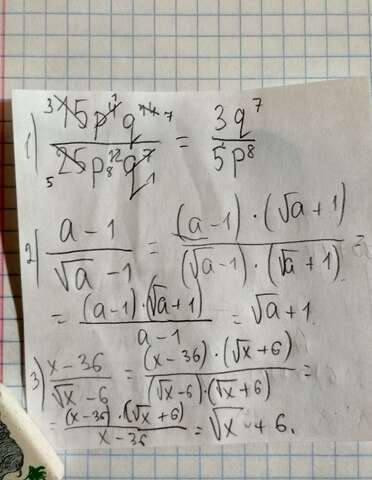 1) 15p⁴q¹⁴ / 25p¹²q⁷ = 3q⁷ / 5p⁸
2) (a - 1) / (√a - 1) = (a - 1) · (√a + 1) / (√a - 1) · (√a + 1) =
= (a - 1) · (√a + 1) / (a - 1) = √a + 1.
3) (x - 36) / (√x - 6) = (x - 36) · (√x + 6) / (√x - 6) · (√x + 6) =
= (x - 36) · (√x + 6) / (x - 36) = √x + 6.